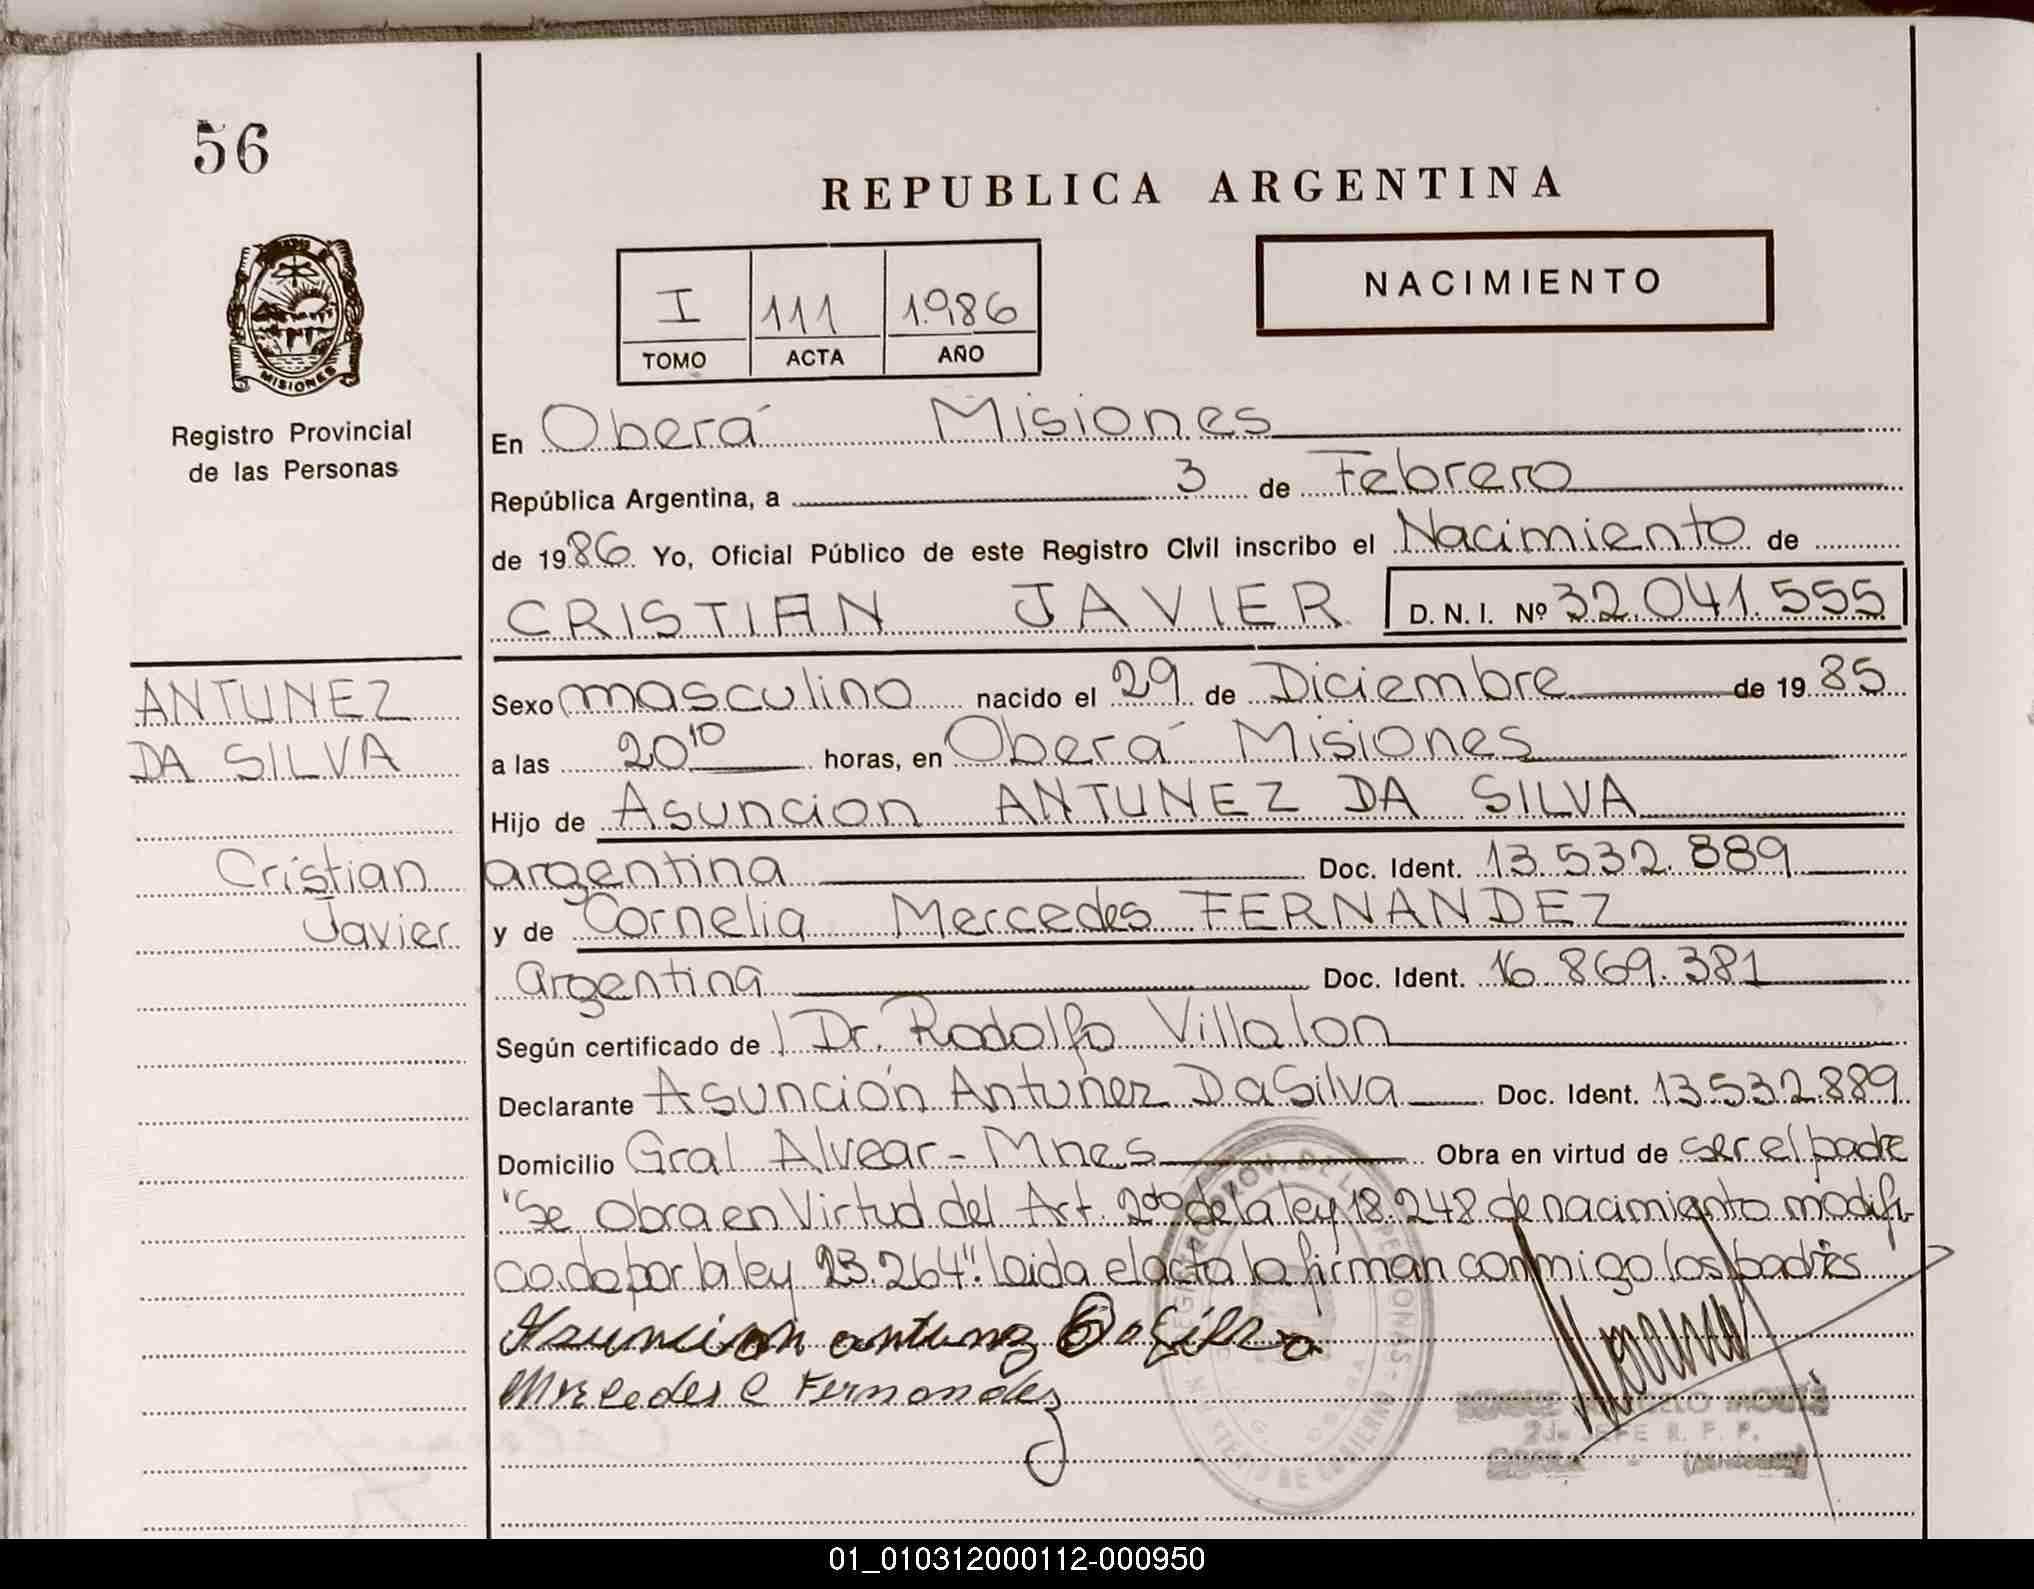 56
REPUBLICA ARGENTINA
MISIONES
Registro Provincial
de las Personas
I 111 1.986
TOMO ACTA AÑO
NACIMIENTO
En Oberá Misiones
República Argentina, a 3 de Febrero
de 1986 Yo, Oficial Público de este Registro Civil inscribo el Nacimiento de
CRISTIAN JAVIER D. N. I. Nº 32.041.555
ANTUNEZ
DA SILVA
Cristian
Javier
Sexo masculino nacido el 29 de Diciembre de 1985
a las 20 10 horas, en Oberá Misiones
Hijo de Asuncion ANTUNEZ DA SILVA
argentina Doc. Ident. 13.532.889
y de Cornelia Mercedes FERNANDEZ
argentina Doc. Ident. 16.869.381
Según certificado de Dr. Rodolfo Villalon
Declarante Asunción Antuñez DaSilva Doc. Ident. 13.532.889
Domicilio Gral Alvear - Mnes Obra en virtud de ser el padre
"Se Obra en Virtud del Art. 2do de la ley 18.248 de nacimiento modifi-
cado por la ley 23.264". Leida el acta la firman conmigo los padres
Asuncion antunez Da Silva
Mercedes C Fernandez
2do JEFE R. P. P.
01_010312000112-000950